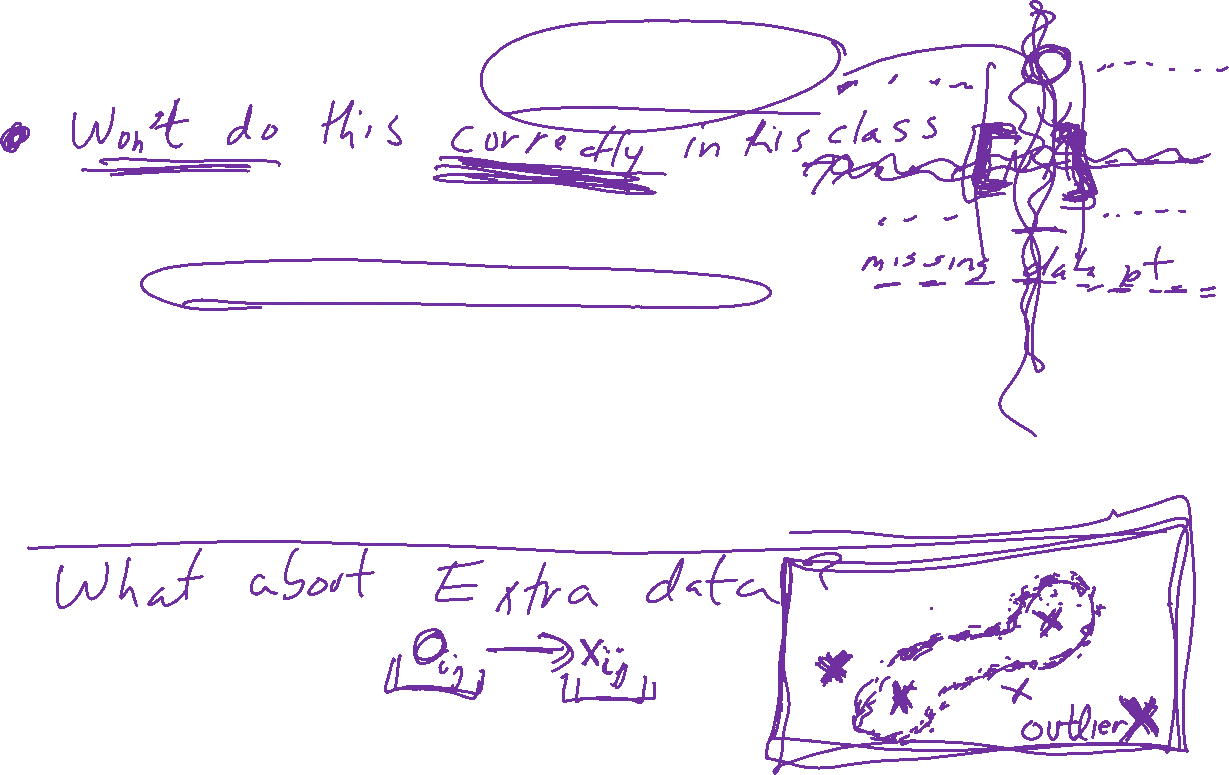 • Won't do this correctly in this class
missing data pt
What about Extra data?
O_ij → x_ij
outlier